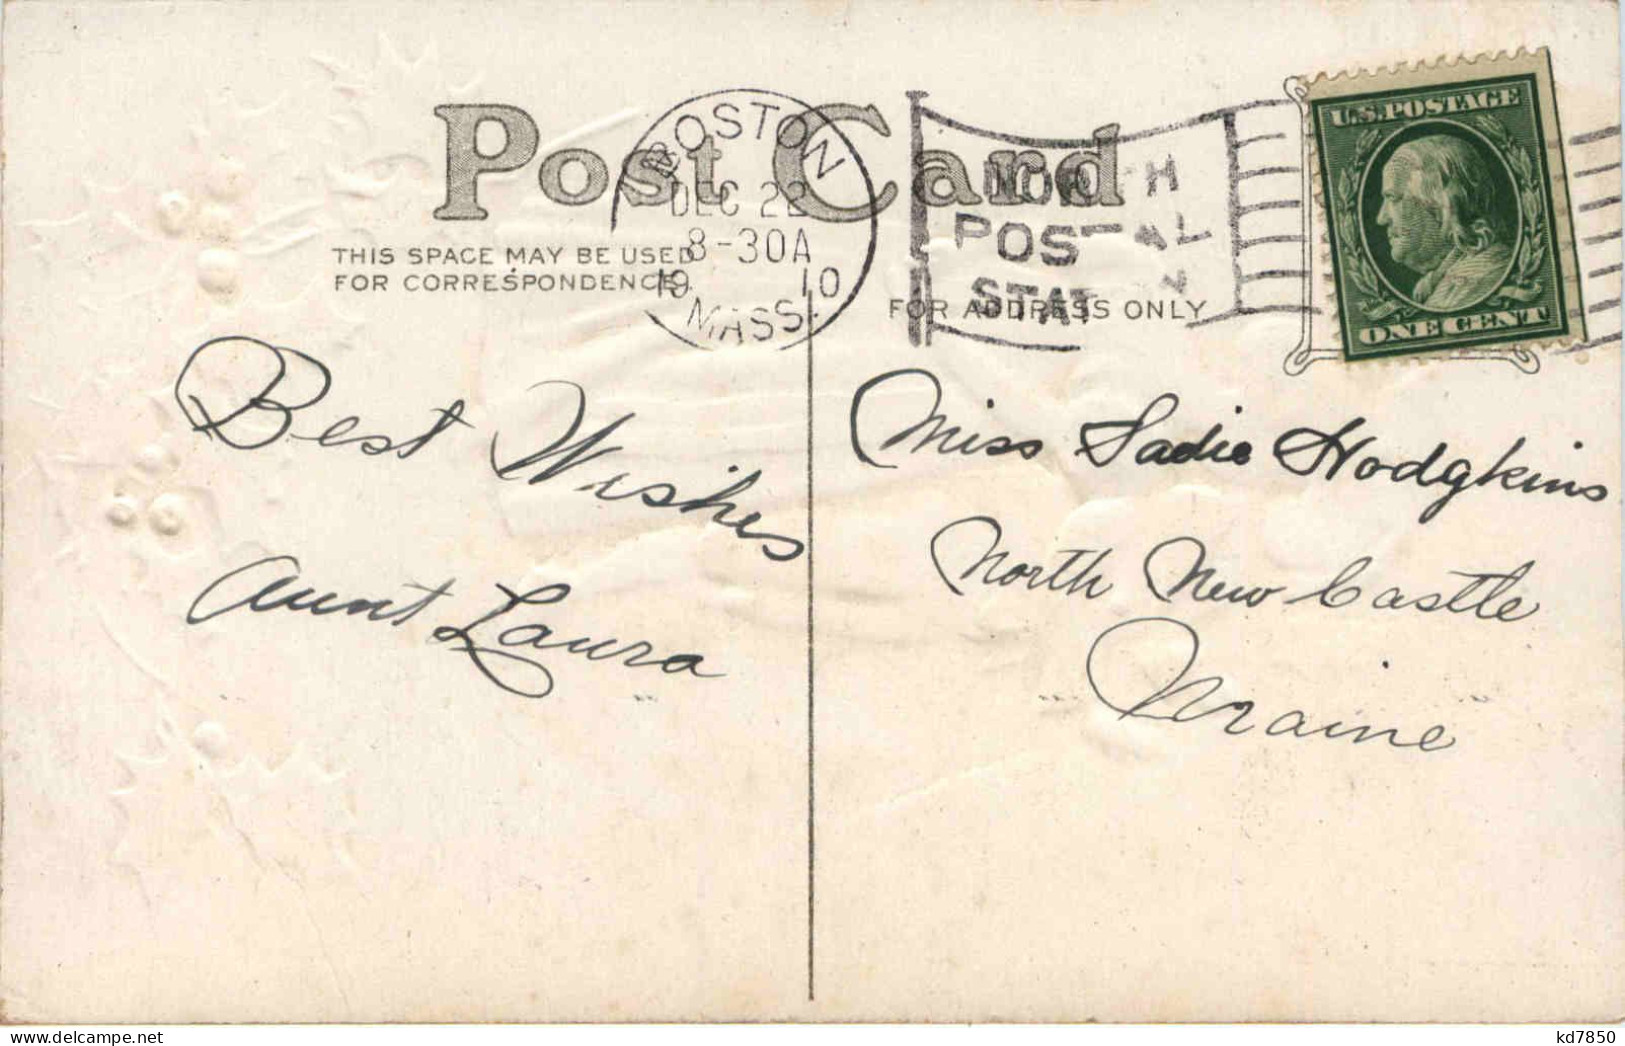 Post Card
THIS SPACE MAY BE USED
FOR CORRESPONDENCE.
BOSTON
DEC 22
8-30A
1910
MASS.
NORTH
POSTAL
STATION
FOR ADDRESS ONLY
U.S. POSTAGE
ONE CENT
Best Wishes
Aunt Laura
Miss Sadie Hodgkins
North New Castle
Maine
delcampe.net
kd7850